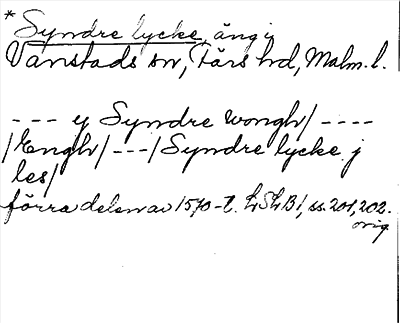 * Syndre lycke, äng i
Vanstads sn, Färs hd, Malm. l.
--- y Syndre wongh/ ----
/Engh/ ---/ Syndre lycke j
les/
förra delen av 1570-t. LSLB1, ss. 201, 202.
orig.